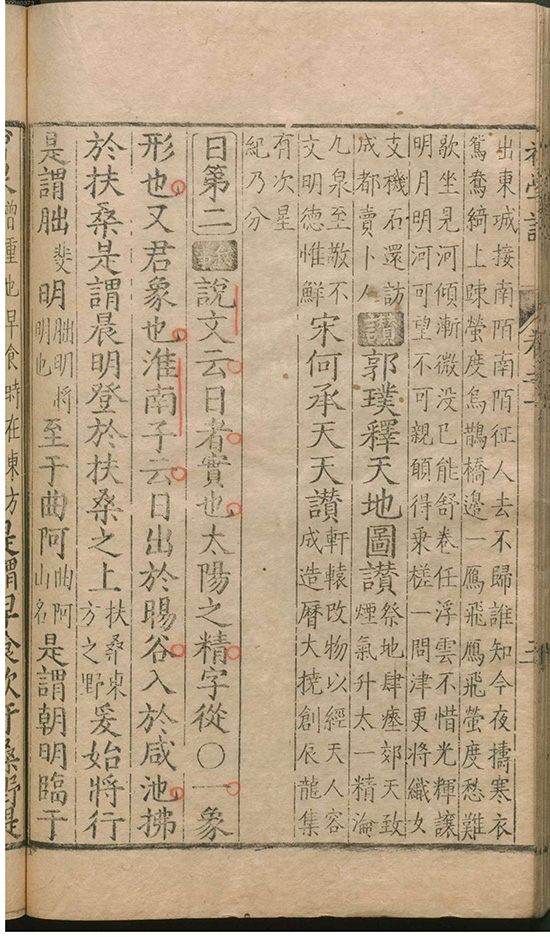 初學記 卷之一 三
出東城接南陌南陌征人去不歸誰知今夜擣寒衣
鴛鴦綺上踈螢度烏鵲橋邊一鴈飛鴈飛螢度愁難
歇坐見河傾漸微沒已能舒卷任浮雲不惜光輝讓
明月明河可望不可親願得乗槎一問津更將織女
支機石還訪
成都賣卜人
讃 郭璞釋天地圖讃
祭地肆瘞郊天致
煙氣升太一精淪
九泉至敬不
文明德惟鮮
宋何承天天讃
軒轅改物以經天人容
成造曆大撓創辰龍集
有次星
紀乃分
日第二 敘事 說文云日者實也太陽之精字從○一象
形也又君象也淮南子云日出於暘谷入於咸池拂
於扶桑是謂晨明登於扶桑之上
扶桑東
方之野
爰始將行
是謂朏
斐
明
朏明將
明也
至于曲阿
曲阿
山名
是謂朝明臨于
曾重也早食時在東方
是謂早食次于桑野是